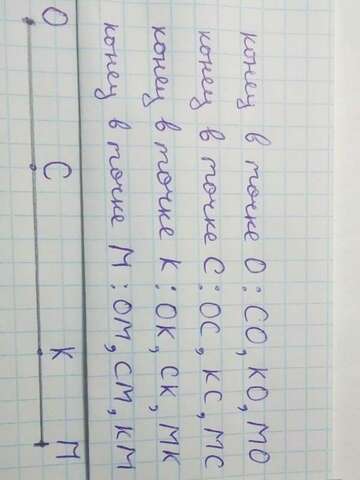 O C K M
конец в точке O: CO, KO, MO
конец в точке C: OC, KC, MC
конец в точке K: OK, CK, MK
конец в точке M: OM, CM, KM